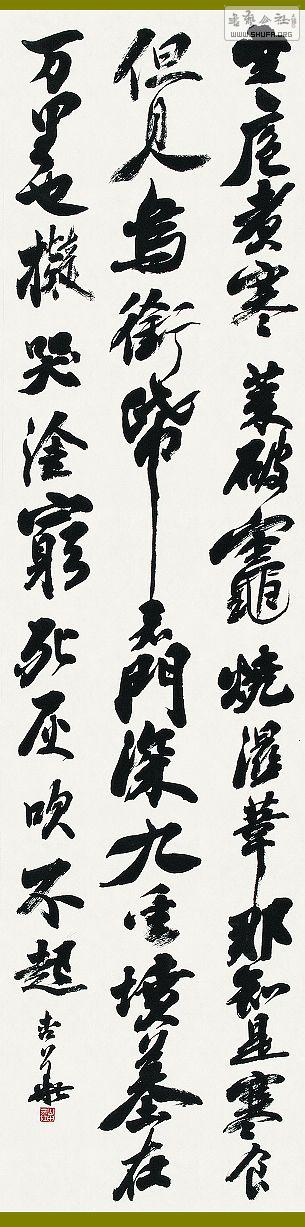 空庖煮寒菜破竈燒濕葦那知是寒食
但見烏銜帋君門深九重墳墓在
万里也擬哭塗窮死灰吹不起
WWW.SHUFA.ORG